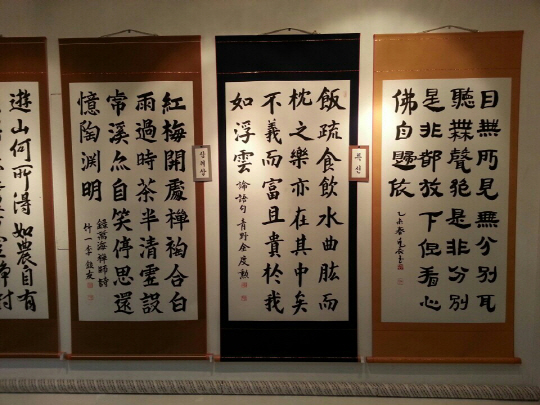 目無所見無分別耳
聽無聲絶是非分別
是非都放下但看心
佛自歸依
乙未春
특선
飯疏食飲水曲肱而
枕之樂亦在其中矣
不義而富且貴於我
如浮雲
論語句 青野 金度勲
장려상
紅梅開處禪初合白
雨過時茶半清虛設
虎溪亦自笑停思還
憶陶淵明
錄萬海禪師詩
竹一李鎭友
遊山何所得如農自有